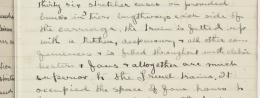 thirty six stretcher cases are provided
bunks in tiers lengthways each side of
the carriage, the train is fitted up
with a Kitchen, dispensary & all other con
-veniences & is heated throughout with
heaters & fans & altogether are much
superior to the French trains, It
occupied the space of four hours to